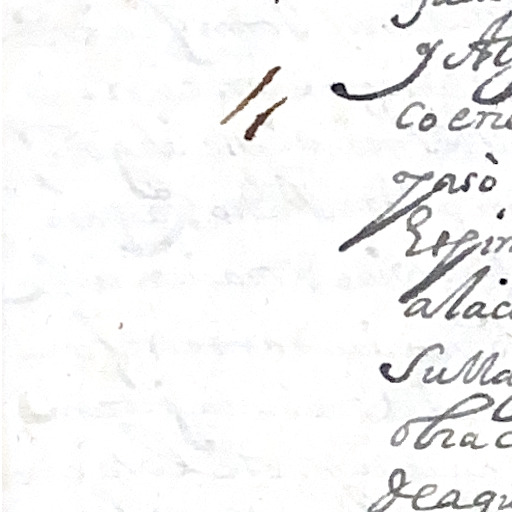 y Al
coen
pasò
Espin
alac
Sulla
obrac
deaqu